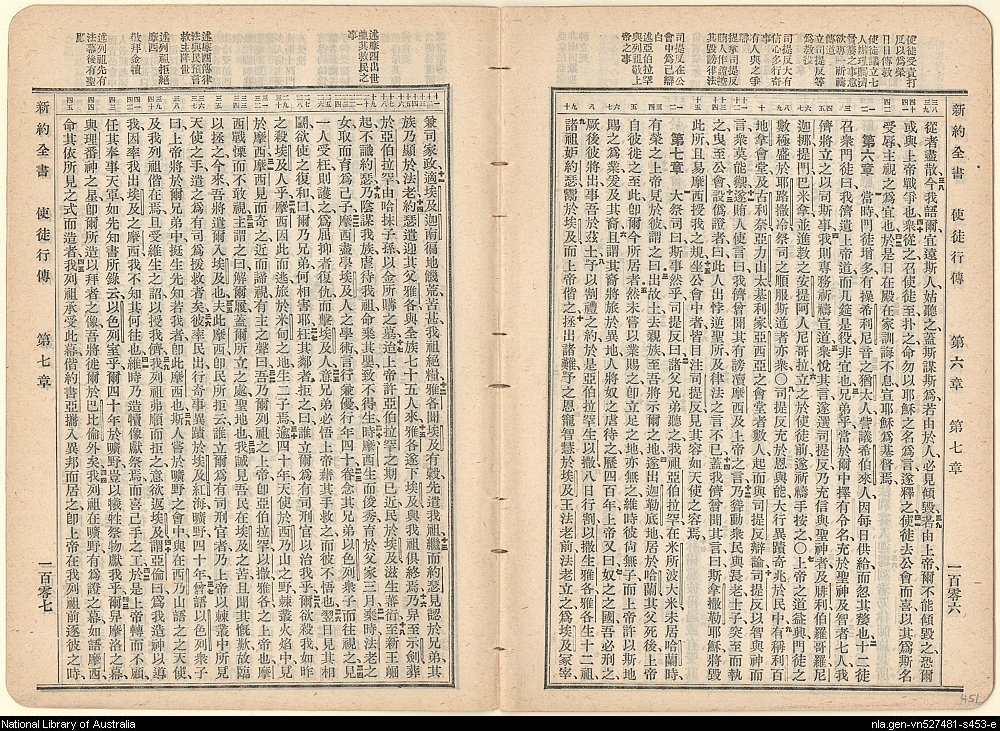 新約全書 使徒行傳 第六章 第七章 一百零六
使徒受責打反以爲榮
日日傳教
使徒議立七人辦理賙濟
發嫠之事意欲專一祈禱傳道
立司提反等爲教役
司提反大有信心多行奇事
有人與之爭辯
從者盡散今我語爾宜遠斯人姑聽之蓋斯謀斯爲若由於人必見傾毀若由上帝爾不能傾毀之恐爾
或與上帝戰爭也衆從之召使徒至扑之命勿以耶穌之名爲言遂釋之使徒去公會而喜以其爲斯名
受辱主視之爲宜也於是日在殿在家訓誨不息宣耶穌爲基督焉
第六章 當時門徒增多有操希利尼音之猶太人訾議希伯來人因每日供給而忽其嫠也十二使徒
召衆門徒曰我儕遺上帝道而几筵是役非宜也兄弟乎當於爾中擇有令名充於聖神及智者七人我
儕將立之以司斯事我則專務祈禱宣道衆悅其言遂選司提反乃充信與聖神者及腓利伯羅哥羅尼
迦挪提門巴米拿並進教之安提阿人尼哥拉立之於使徒前遂祈禱手按之〇上帝之道益興門徒之
數極盛於耶路撒冷祭司之順服斯道者亦衆〇司提反充於恩與能大行異蹟奇兆於民中有稱利百
地拿會堂及古利奈亞力山太基利家亞西亞之會堂者數人起而與司提反辯論司提反以智與神而
言衆莫能禦遂賄人使言曰我儕曾聞其有謗讟摩西及上帝之言乃聳動衆民與長老士子突至而執
之曳至公會設僞證者曰此人出悖逆聖所及律法之言不已蓋我儕曾聞其言曰斯拿撒勒耶穌將毀
此所且易摩西授我之規坐公會中者皆目注司提反見其容如天使之容焉
第七章 大祭司曰斯事然乎司提反曰諸父兄弟聽之我祖亞伯拉罕在米所波大米未居哈蘭時
有榮之上帝見於彼謂之曰出故土去親族至吾將示爾之地遂出迦勒底地居於哈蘭其父死後上帝
自彼徙之至此即爾今所居者然未嘗以業賜之即立足之地亦無之維時彼尚無子而上帝許以斯地
賜之爲業爰及其裔且謂其裔將旅於異地人將奴之虐待之歷四百年上帝又曰奴之之國吾必刑之
厥後彼將出事吾於兹土予以割禮之約於是亞伯拉罕生以撒八日行割以撒生雅各雅各生十二
諸祖妒約瑟鬻於埃及而上帝偕之拯出諸難予之恩寵智慧於埃及王法老前法老立之爲埃及冢宰
兼司家政適埃及迦南徧地饑荒苦甚我祖絕糧雅各聞埃及有穀先遣我祖繼而約瑟見認於兄弟其
族乃顯於法老約瑟遣迎其父雅各與全族七十五人來雅各遂下埃及與我祖俱終焉乃舁至示劍葬
於亞伯拉罕由哈抹子孫以金所購之墓迨上帝許亞伯拉罕之期已近民於埃及滋生蕃衍至新王崛
起不識約瑟乃陰謀我族虐待我祖命棄其嬰致不得生時摩西生而俊秀育於父家三月棄時法老之
女取而育爲己子摩西盡學埃及人之學術言行兼優行年四十眷念其兄弟以色列衆子而往視之見
一人受枉則護之爲屈抑者復仇而擊埃及人意兄弟必悟上帝藉其手救之而彼不悟也翌日見其相
鬬欲使之復和曰爾乃兄弟何相害耶枉其鄰者拒之曰誰立爾爲有司刑官以治我乎爾欲殺我如昨
之殺埃及人乎摩西因此而逃旅於米甸之地生二子焉逾四十年天使於西乃山之野棘叢火焰中見
於摩西摩西見而奇之近而諦視有主之聲曰吾乃爾列祖之上帝即亞伯拉罕以撒雅各之上帝也摩
西戰慄而不敢視主謂之曰解爾履蓋爾所立之處聖地也我誠見吾民在埃及之苦且聞其慨歎故臨
以拯之今來吾將遣爾入埃及也夫此摩西卽民所拒云誰立爾爲有司刑官者乃上帝以棘叢中所見
天使之手遣之爲有司爲援救者矣彼率民出行奇事異蹟於埃及紅海曠野四十年曾語以色列衆子
曰上帝將於爾兄弟中挺生先知若我者卽此摩西也斯人嘗於曠野之會中與在西乃山語之之天使
及我列祖偕在焉且受維生之詔以授我儕我列祖弗順而拒之意欲返埃及謂亞倫曰爲我造神以導
我因率我出埃及之摩西我不知其何往也維時乃造犢像獻祭焉而喜己手之工於是上帝轉而不顧
任其奉事天軍如先知書所錄云以色列室乎爾四十年於曠野豈以犧牲祭物獻我乎爾舁摩洛之幕
與理番神之星卽爾所造以拜者之像吾將徙爾於巴比倫外矣我列祖在曠野有爲證之幕如語摩西
命其依所見之式而造者我列祖承受此幕偕約書亞攜入異邦而居之卽上帝在我列祖前逐彼之時
新約全書 使徒行傳 第七章 一百零七
National Library of Australia
nla.gen-vn527481-s453-e